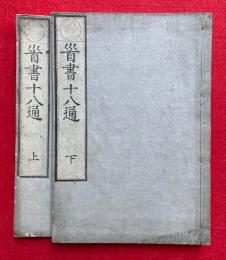 首書十八通 下
首書十八通 上